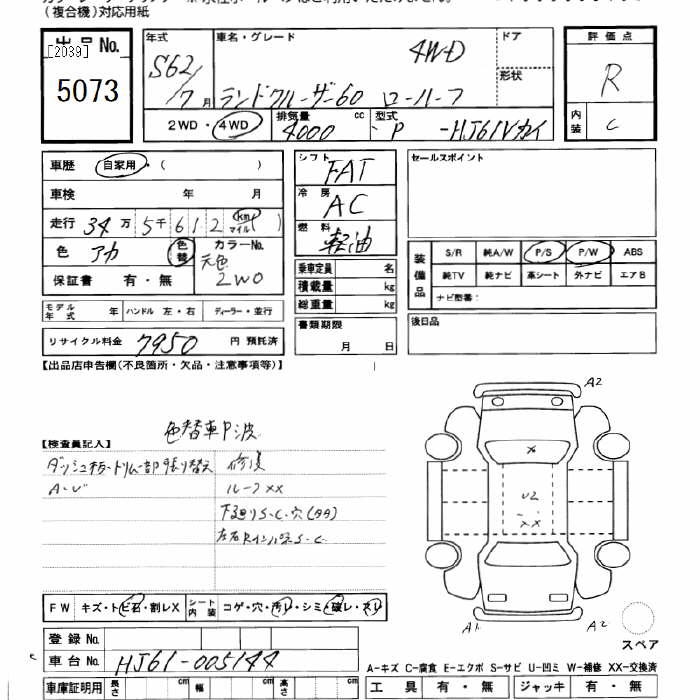 (複合機)対応用紙
出品No.
[2039]
5073
年式
S62/7月
車名・グレード
4WD
ランドクルーザー60 ロールーフ
ドア
形状
2WD・4WD
排気量
4000 cc
型式
P -HJ61Vカイ
評価点
R
内装
C
車歴
自家用・( )
車検 年 月
走行 34万5千612 km マイル( )
色 アカ
色替
カラーNo.
元色
2W0
保証書 有・無
モデル年式 年
ハンドル 左・右
ディーラー・並行
リサイクル料金 7950 円 預託済
シフト
FAT
冷房
AC
燃料
軽油
乗車定員 名
積載量 kg
総重量 kg
書類期限
月 日
セールスポイント
装備品
S/R 純A/W P/S P/W ABS
純TV 純ナビ 革シート 外ナビ エアB
ナビ型番:
後日品
【出品店申告欄(不良箇所・欠品・注意事項等)】
色替車P波
【検査員記入】
ダッシュ板・トリム一部張り替え
A・U
修復
ルーフXX
下廻りS・C・穴(タタ)
左右RインパネS・C
A2
U2
XX
A1
A2
スペア
FW キズ・トビ石・割レX
シート内装 コゲ・穴・汚レ・シミ・破レ・スレ
登録No.
車台No. HJ61-005144
車庫証明用 長さ cm 幅 cm 高さ cm
A-キズ C-腐食 E-エクボ S-サビ U-凹ミ W-補修 XX-交換済
工具 有・無 ジャッキ 有・無